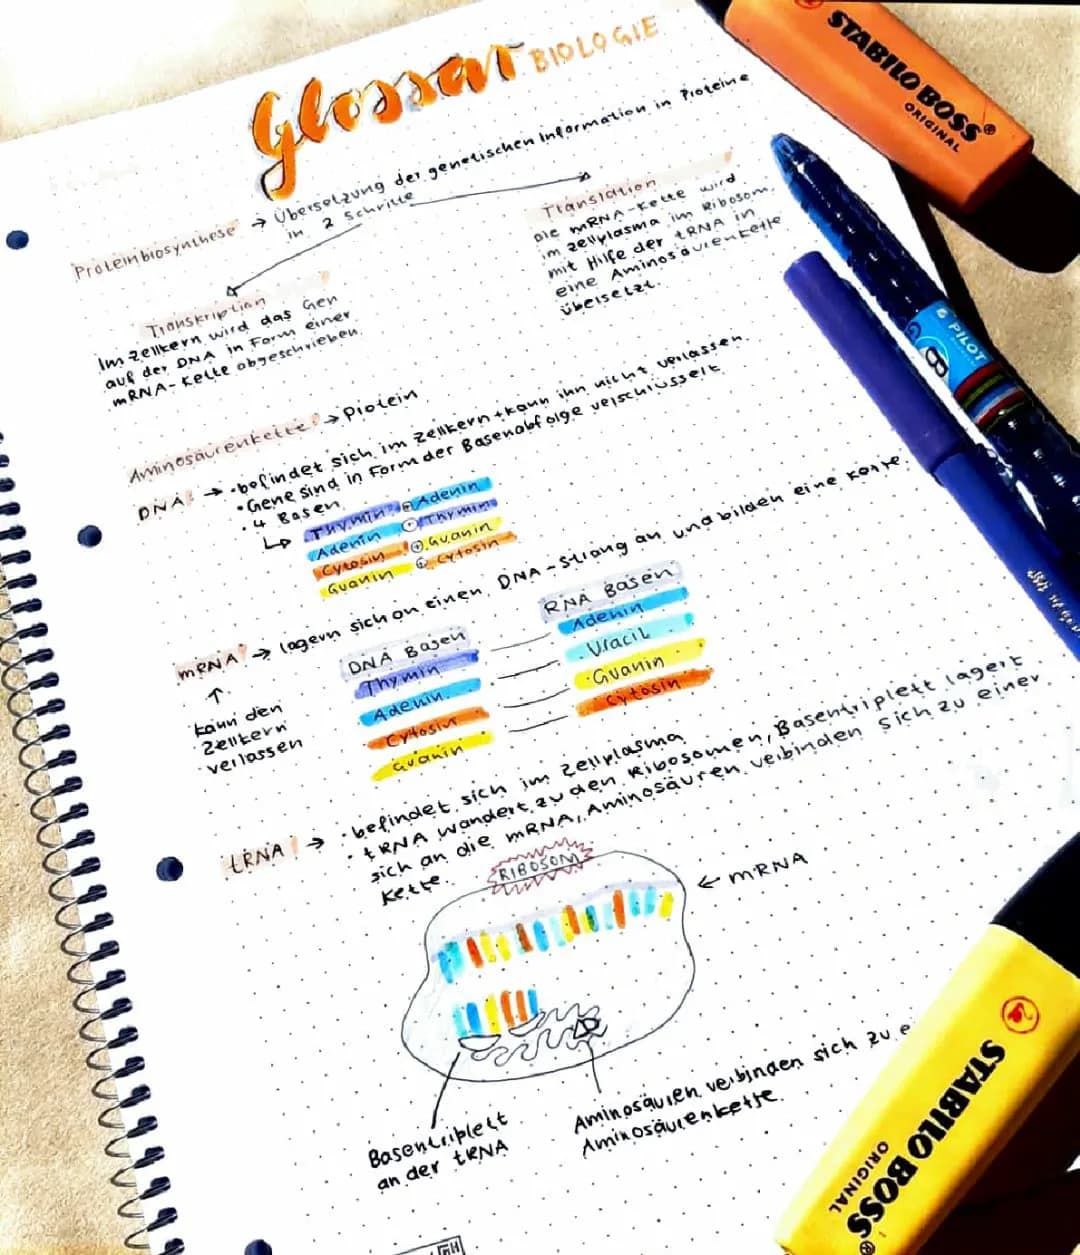 Glossar BIOLOGIE
Proteinbiosynthese → Übersetzung der genetischen Information in Proteine
in 2 Schritte
Transkription
Im Zellkern wird das Gen
auf der DNA in Form einer
mRNA-Kette abgeschrieben.
Translation
Die mRNA-Kette wird
im Zellplasma im Ribosom
mit Hilfe der tRNA in
eine Aminosäurenkette
übersetzt.
Aminosäurenkette → Protein
DNA → • befindet sich im Zellkern + kann ihn nicht verlassen.
• Gene sind in Form der Basenabfolge verschlüsselt
• 4 Basen
Thymin + Adenin
Adenin + Thymin
Cytosin + Guanin
Guanin + Cytosin
mRNA → lagern sich an einen DNA-Strang an und bilden eine Kette.
↑
kann den
Zellkern
verlassen
DNA Basen
Thymin
Adenin
Cytosin
Guanin
RNA Basen
Adenin
Uracil
Guanin
Cytosin
tRNA → • befindet sich im Zellplasma
• tRNA wandert zu den Ribosomen, Basentriplett lagert
sich an die mRNA, Aminosäuren verbinden sich zu einer
Kette.
RIBOSOM
← mRNA
Basentriplett
an der tRNA
Aminosäuren verbinden sich zu e
Aminosäurenkette.
STABILO BOSS®
ORIGINAL
PILOT
STABILO BOSS®
ORIGINAL